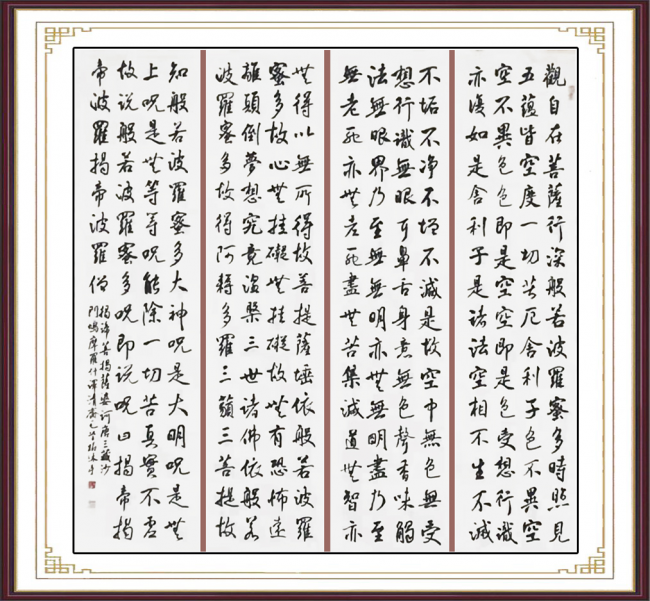 觀自在菩薩行深般若波羅蜜多時照見
五蘊皆空度一切苦厄舍利子色不異空
空不異色色即是空空即是色受想行識
亦復如是舍利子是諸法空相不生不滅
不垢不净不增不減是故空中無色無受
想行識無眼耳鼻舌身意無色聲香味觸
法無眼界乃至無無明亦無無明盡乃至
無老死亦無老死盡無苦集滅道無智亦
無得以無所得故菩提薩埵依般若波羅
蜜多故心無挂礙無挂礙故無有恐怖遠
離顛倒夢想究竟涅槃三世諸佛依般若
波羅蜜多故得阿耨多羅三藐三菩提故
知般若波羅蜜多大神呪是大明呪是無
上呪是無等等呪能除一切苦真實不虛
故說般若波羅蜜多呪即說呪曰揭帝揭
帝波羅揭帝波羅僧
揭諦菩提薩婆訶唐三藏沙
門鳩摩羅什譯